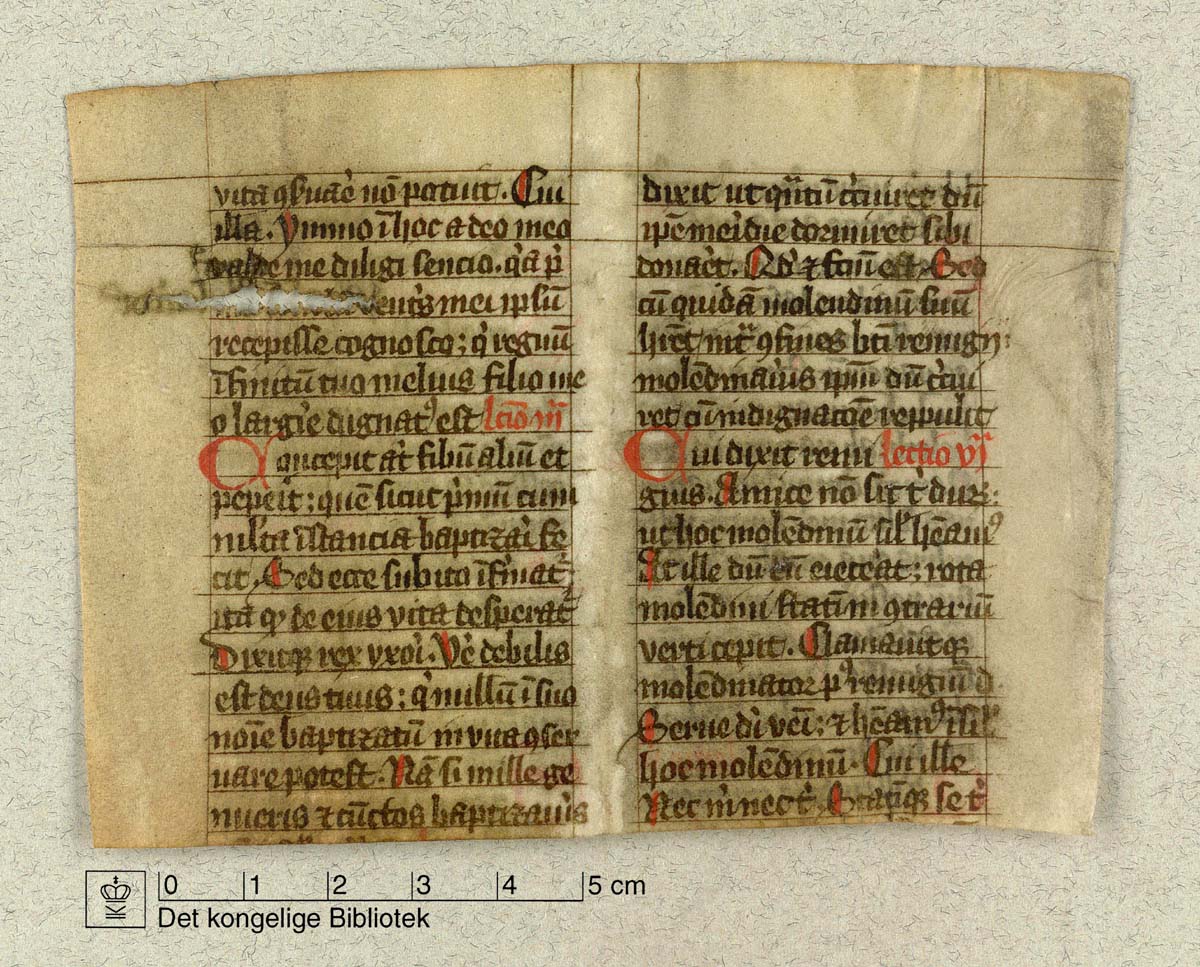 vita ꝯſuaẻ nō potuit. Cui
illa. Ymmo ī hoc a deo meo
valde me diligi sencio. qꝛ p̄
ventꝭs mei ipsū
recepisse cognosco; qͥ regnū
īfinitū tuo melius filio me
o largiꝛe dignatꝰ est lcio iiī
Concepit at̄ filiū aliū et
peperit; quē sicut pͥmū cum
mlta īstancia baptizaꝛi fe
cit. Sed ecce subito īfirmatꝰ
ita qꝫ de eius vita desperat
Dixitqꝫ rex vxoꝛi. Ve᷒ debilis
est deus tuus; qͥ nullū ī suo
noīe baptizatū in vita ꝯser
uare potest. Nā si mille ge
nueris ⁊ cūctos baptizauis
dixit ut qᷓntū cͥcuiret dū
ipē meꝛidie dormiret sibi
donaꝛet. Qd ⁊ fcm̄ est. Sed
cū quidā molendinū suū
hr̄et intͣ ꝯfines bti remigij:
molēdinaꝛius ipm̄ dū cͥcui
ret cū indignacōe reppulit
Cui dixit remi lectio vj
gius. Amice nō sit tͥ duꝝ:
ut hoc molēdinū siḷ hēamꝰ
At ille dū eū eieceꝛat; rota
molēdini statim ꝯtrariū
verti cepit. Clamauitqꝫ
molēdinator pꝰ remigiū d.
Serue dī veī; ⁊ hēamꝰ isil
hoc molēdinū. Cui ille
Nec m̄ nec tͥ. Statīqꝫ se tͬ
0 1 2 3 4 5 cm
Det kongelige Bibliotek